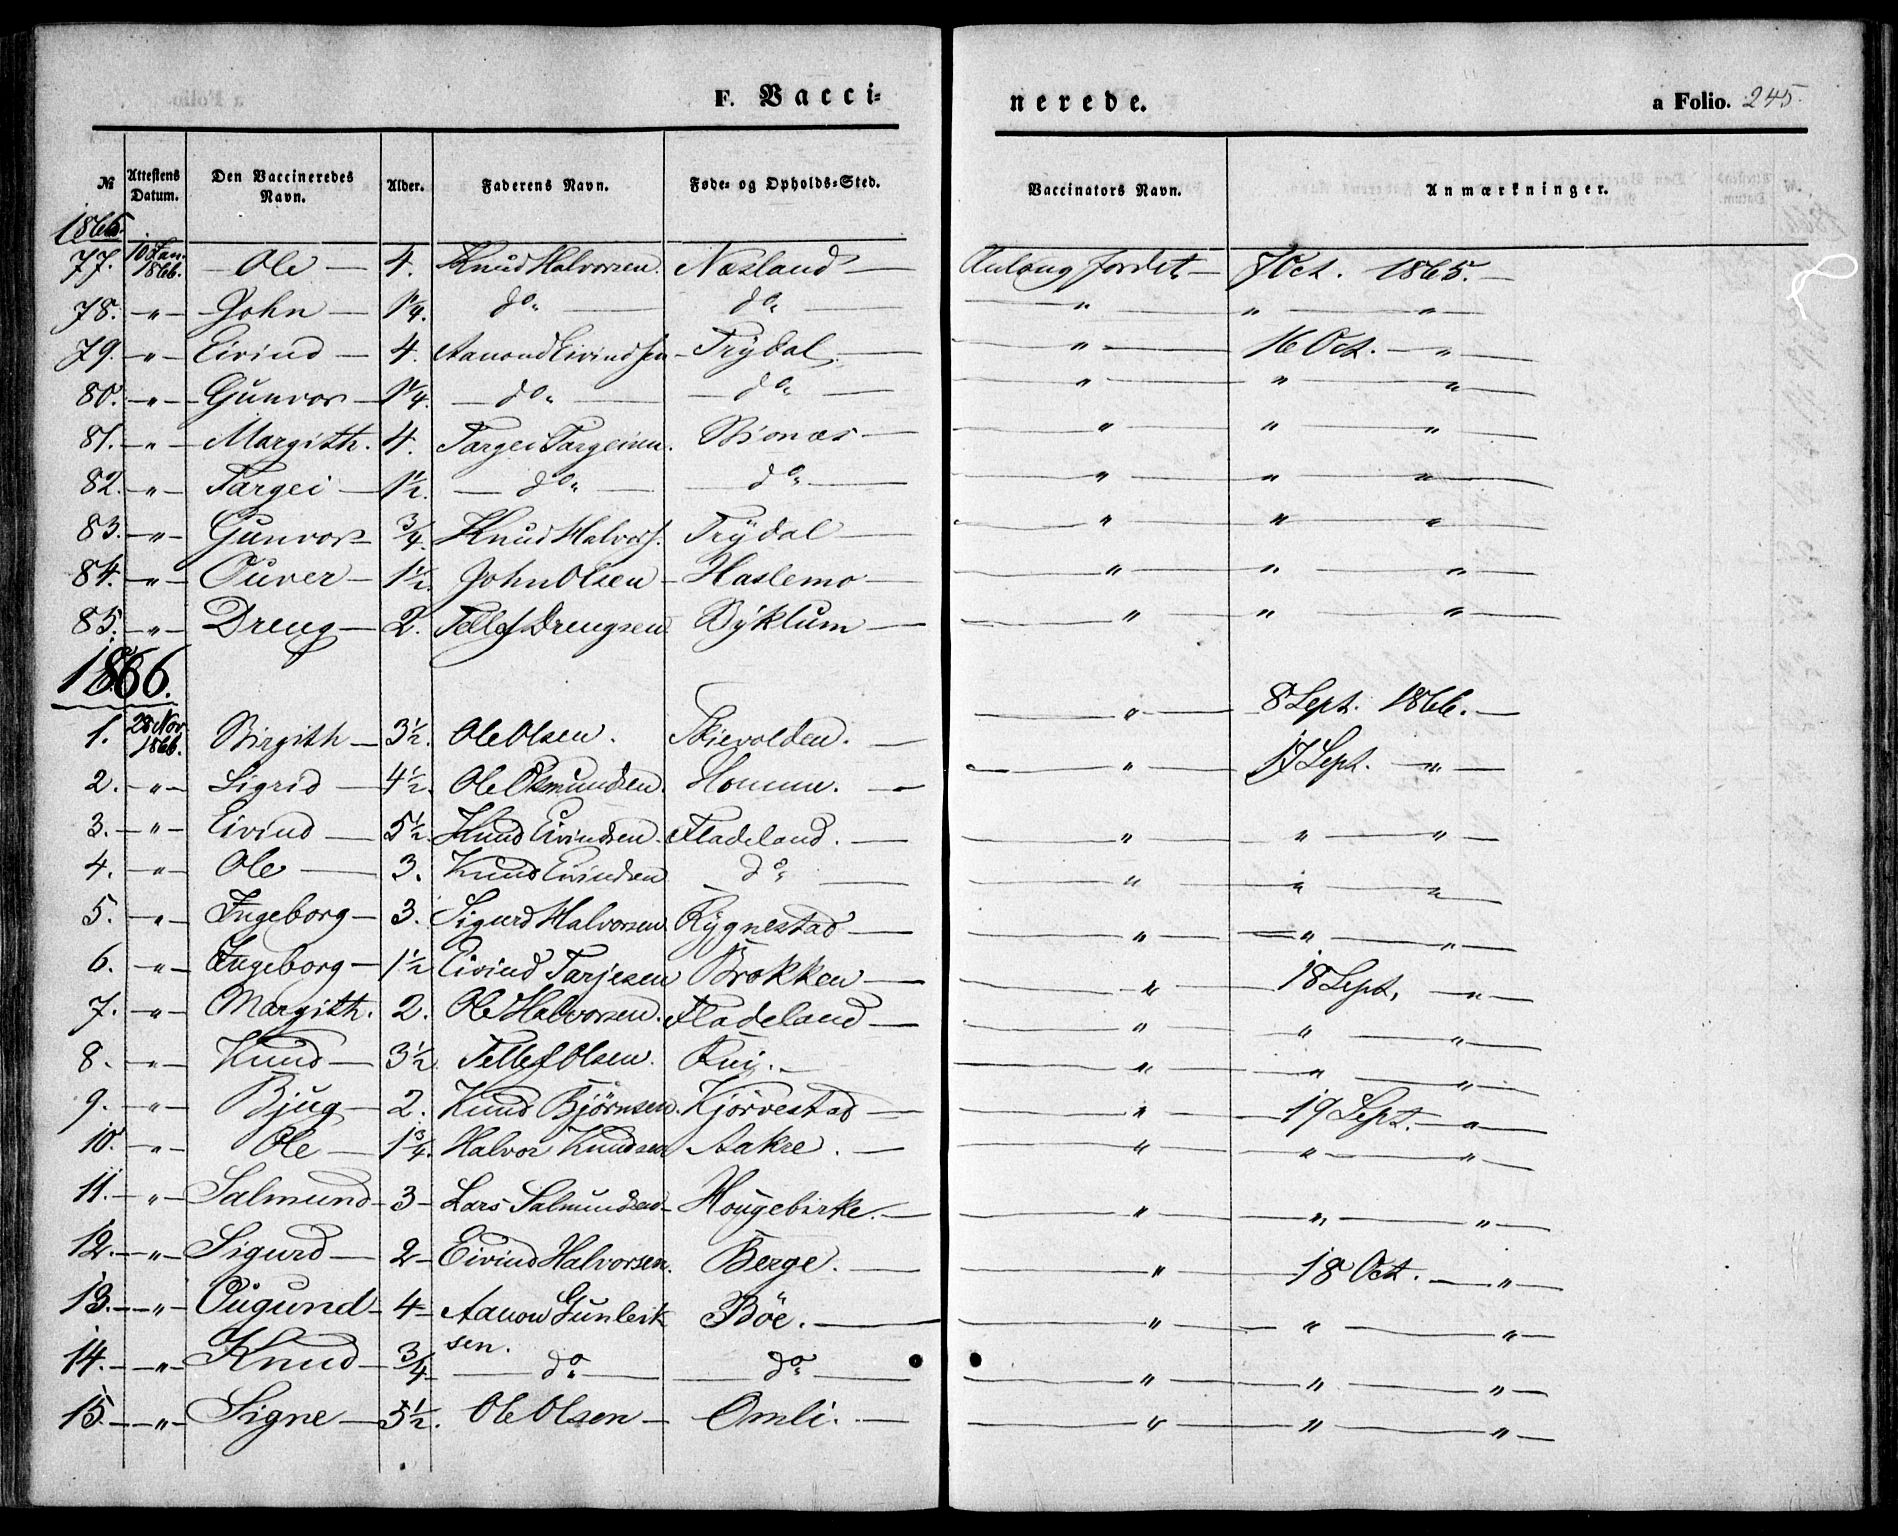 F. Vacci=
nerede.
a Folio. 245.
№ Attestens Datum. Den Vaccineredes Navn. Alder. Faderens Navn. Føde- og Opholds-Sted. Vaccinators Navn. Anmærkninger.
1865.
77. 10 Jan. 1866. — Ole — 4. Knud Halvorsen. Næsland — fordet — 7 Oct. 1865. —
78. — " — John — 1 1/4. do " — do " — — " — " — " —
79. — " — Eivind — 4. Aanond Eivindsen — Trydal. — — " — 16 Oct. — " —
80. — " — Gunvor — 1 1/4. — do " — — do " — — " — " — " —
81. — " — Margith. 4. Targei Targeisen. Bjonæs — — " — " — " —
82. — " — Targei — 1 1/2. — do " — — do " — — " — " — " —
83. — " — Gunvor — 3/4. Knud Halvors. Trydal — — " — " — " —
84. — " — Ouver — 1 1/2. John Olsen — Haslemo — — " — " — " —
85. — " — Dreng — 2. Tellef Drengsen Byklum — — " — " — " —
1866.
1. 28 Nov. 1866. Birgith — 3 1/2. Ole Olsen. Skievolden. — — " — 8 Sept. 1866. —
2. — " — Sigrid — 4 1/2. Ole Osmundsen. Homme. — — " — 17 Sept. — " —
3. — " — Eivind — 5 1/2. Knud Eivindsen. Fladeland. — — " — " — " —
4. — " — Ole — 3. Knud Eivindsen do " — — " — " — "
5. — " — Ingeborg — 3. Sigurd Halvorsen Rygnestad — — " — " — " —
6. — " — Ingeborg — 1 1/2 Eivind Tarjesen Brokken — — " — 18 Sept. — " —
7. — " — Margith. 2. Ole Halvorsen. Fladeland — — " — " — " —
8. — " — Knud — 3 1/2. Tellef Olsen. Rui. — — " — " — " —
9. — " — Bjug — 2. Knud Bjørnsen. Kjørvestad — — " — 19 Sept. — " —
10. — " — Ole — 1 3/4. Halvor Knudsen Aakre. — — " — " — " —
11. — " — Salmund — 3 — Lars Salmundsen — Hougebirke. — — " — " — " —
12. — " — Sigurd — 2 — Eivind Halvorsen. Berge. — — " — 18 Oct. — " —
13. — " — Ougund — 4 — Aanon Gunleik Böe. — — " — " — " —
sen.
14. — " — Knud — 3/4 — do " — — do " — — " — " — " —
15. — " — Signe — 5 1/2. Ole Olsen — Omli. — — " — " — " —